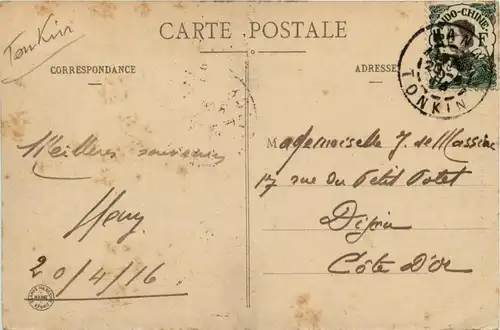 Tonkin
CARTE POSTALE
INDO-CHINE
TONKIN
CORRESPONDANCE
ADRESSE
Meilleurs souvenirs
20/4/16
Mademoiselle J. de Massiac
17 rue du Petit Potet
Dijon
Côte d'Or